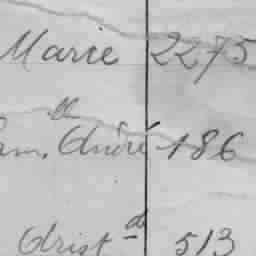 Marie 2275
André 186
Arist d 513